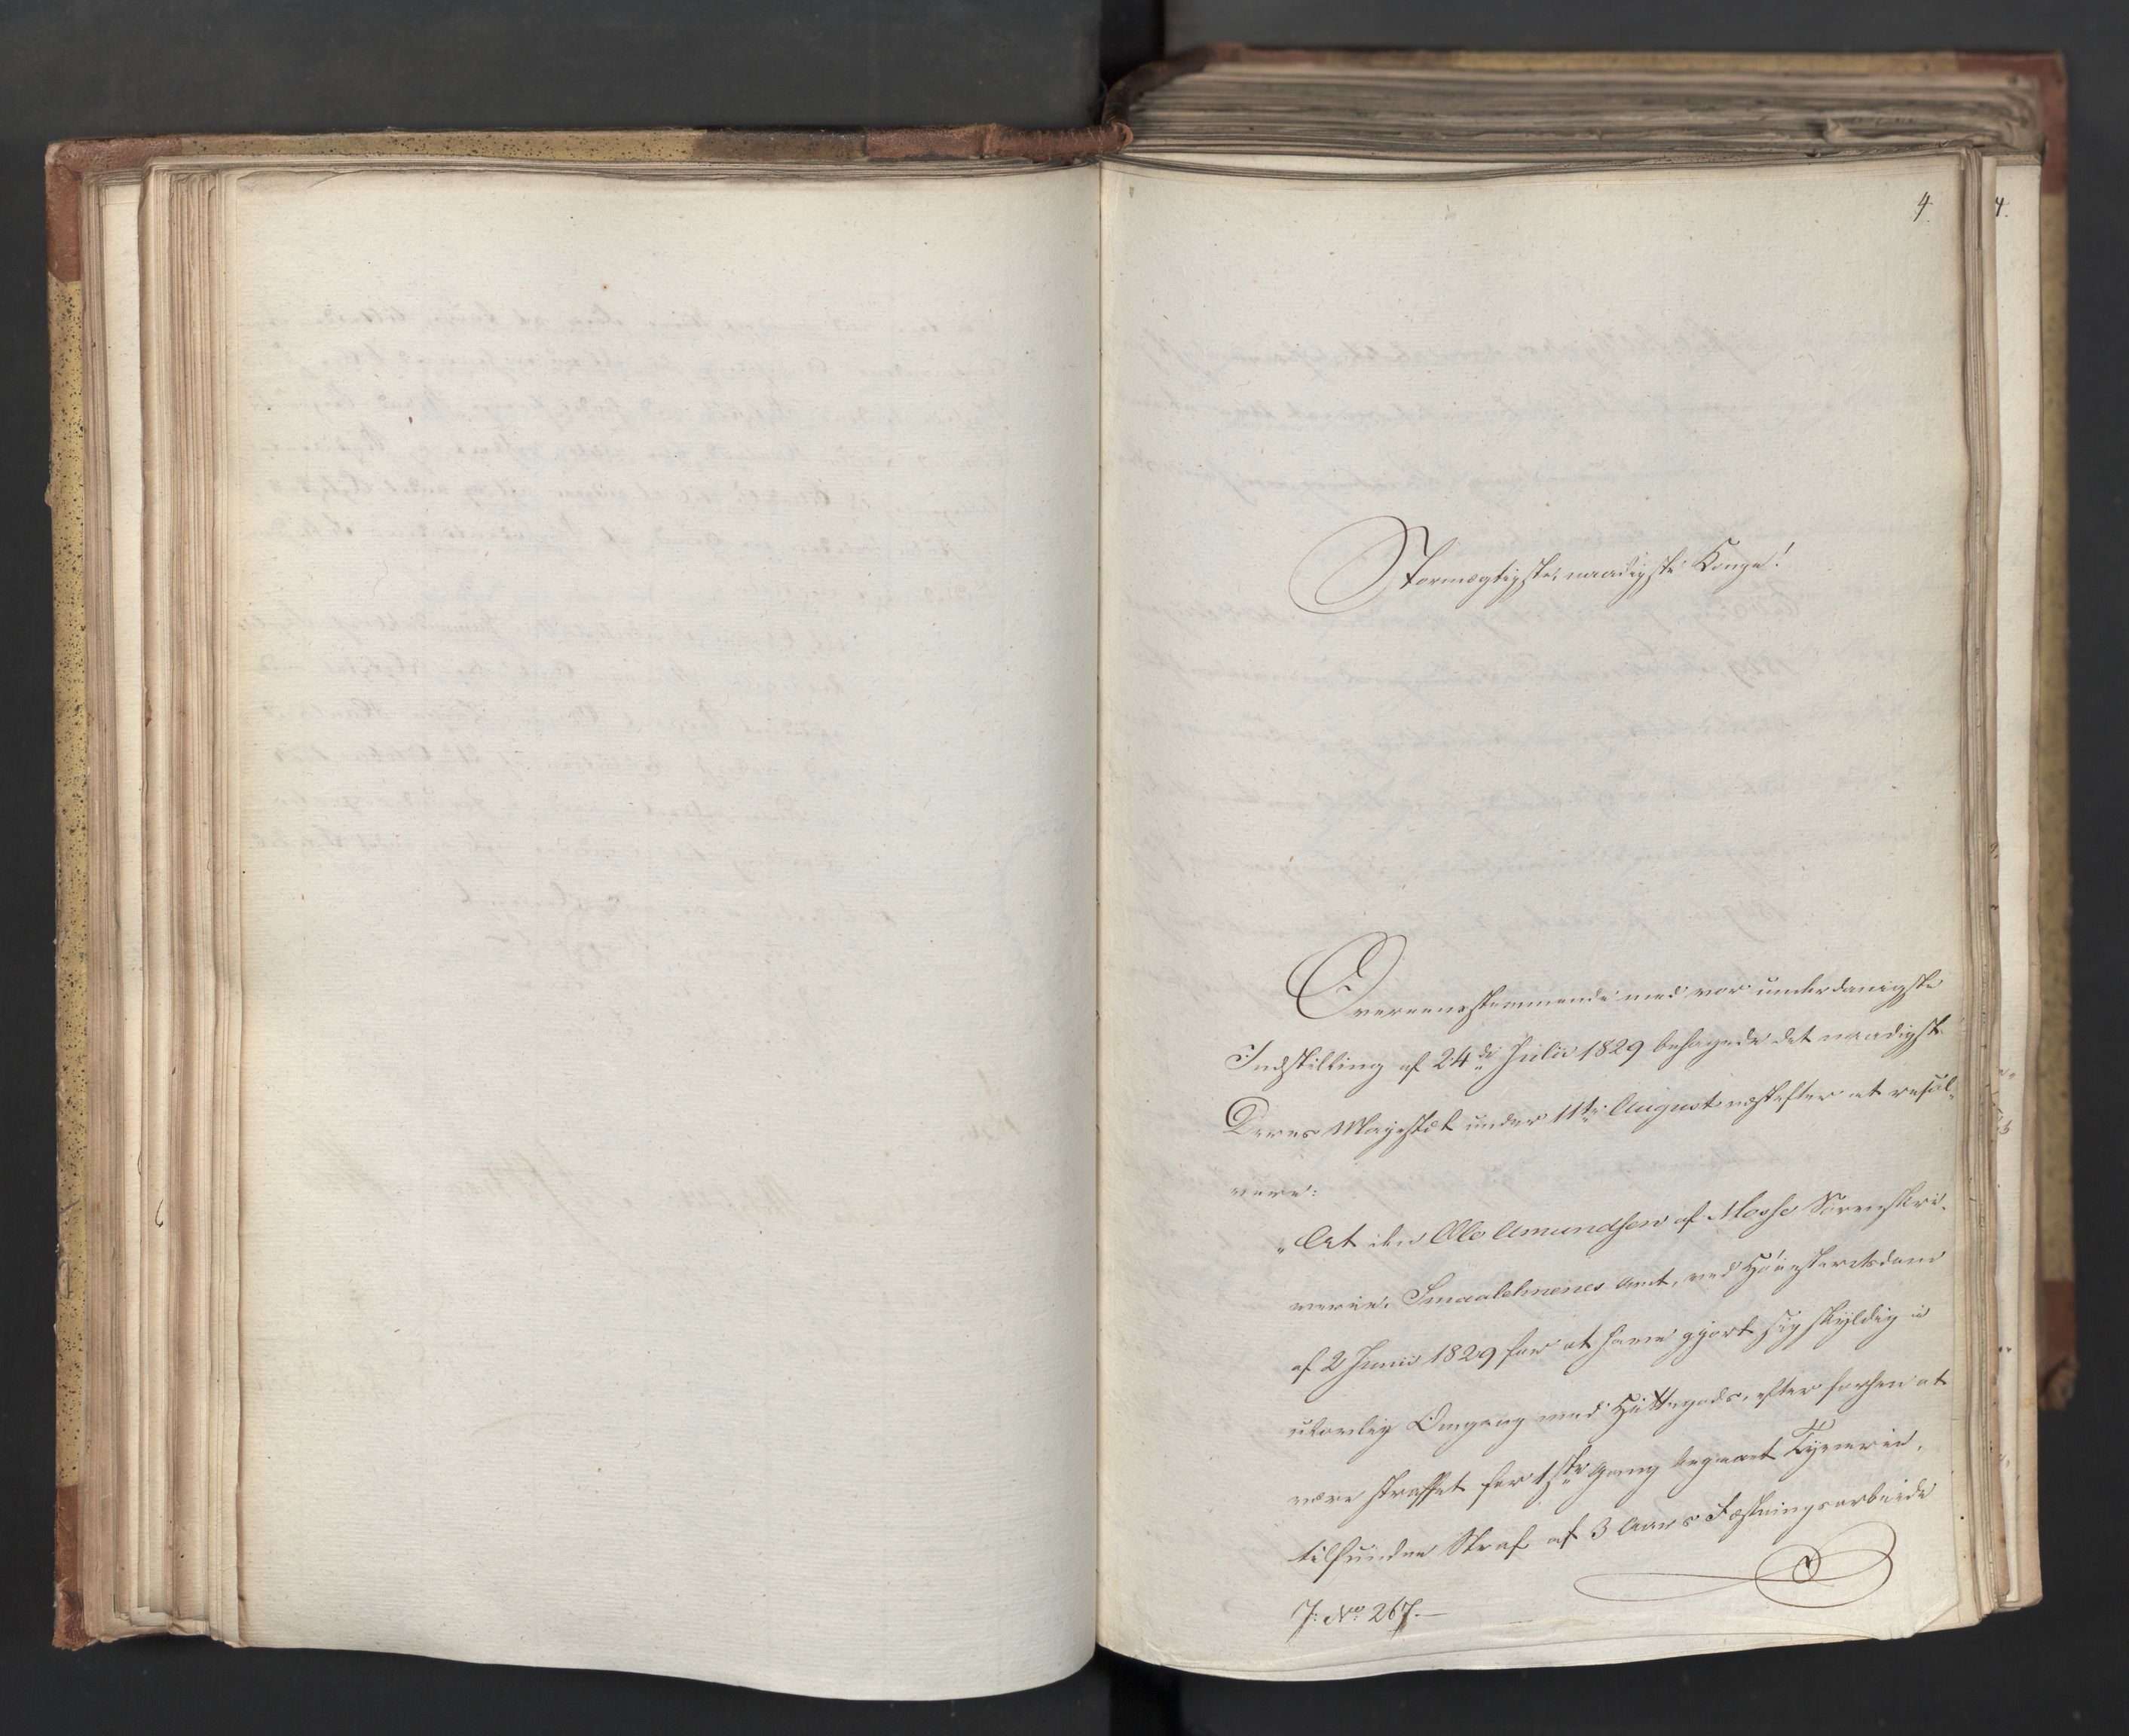 4.
Stormægtigste, naadigste Konge!
Overeensstemmende med vor underdanigste
Indstilling af 24de Julii 1829 behagede det naadigst
Deres Majestæt under 11te August næstefter at resol-
vere:
"At den Ole Amundsen af Mosse Sorenskri-
verie, Smaalehnenes Amt, ved Høiesteretsdom
af 2 Junii 1829 for at have gjort sig skyldig i
ulovlig Omgang med Hittegods, efter forhen at
være straffet for 1ste Gang begaaet Tyverie,
tilfundne Straf af 3 Aars Fæstningsarbeide
J: No 267.—